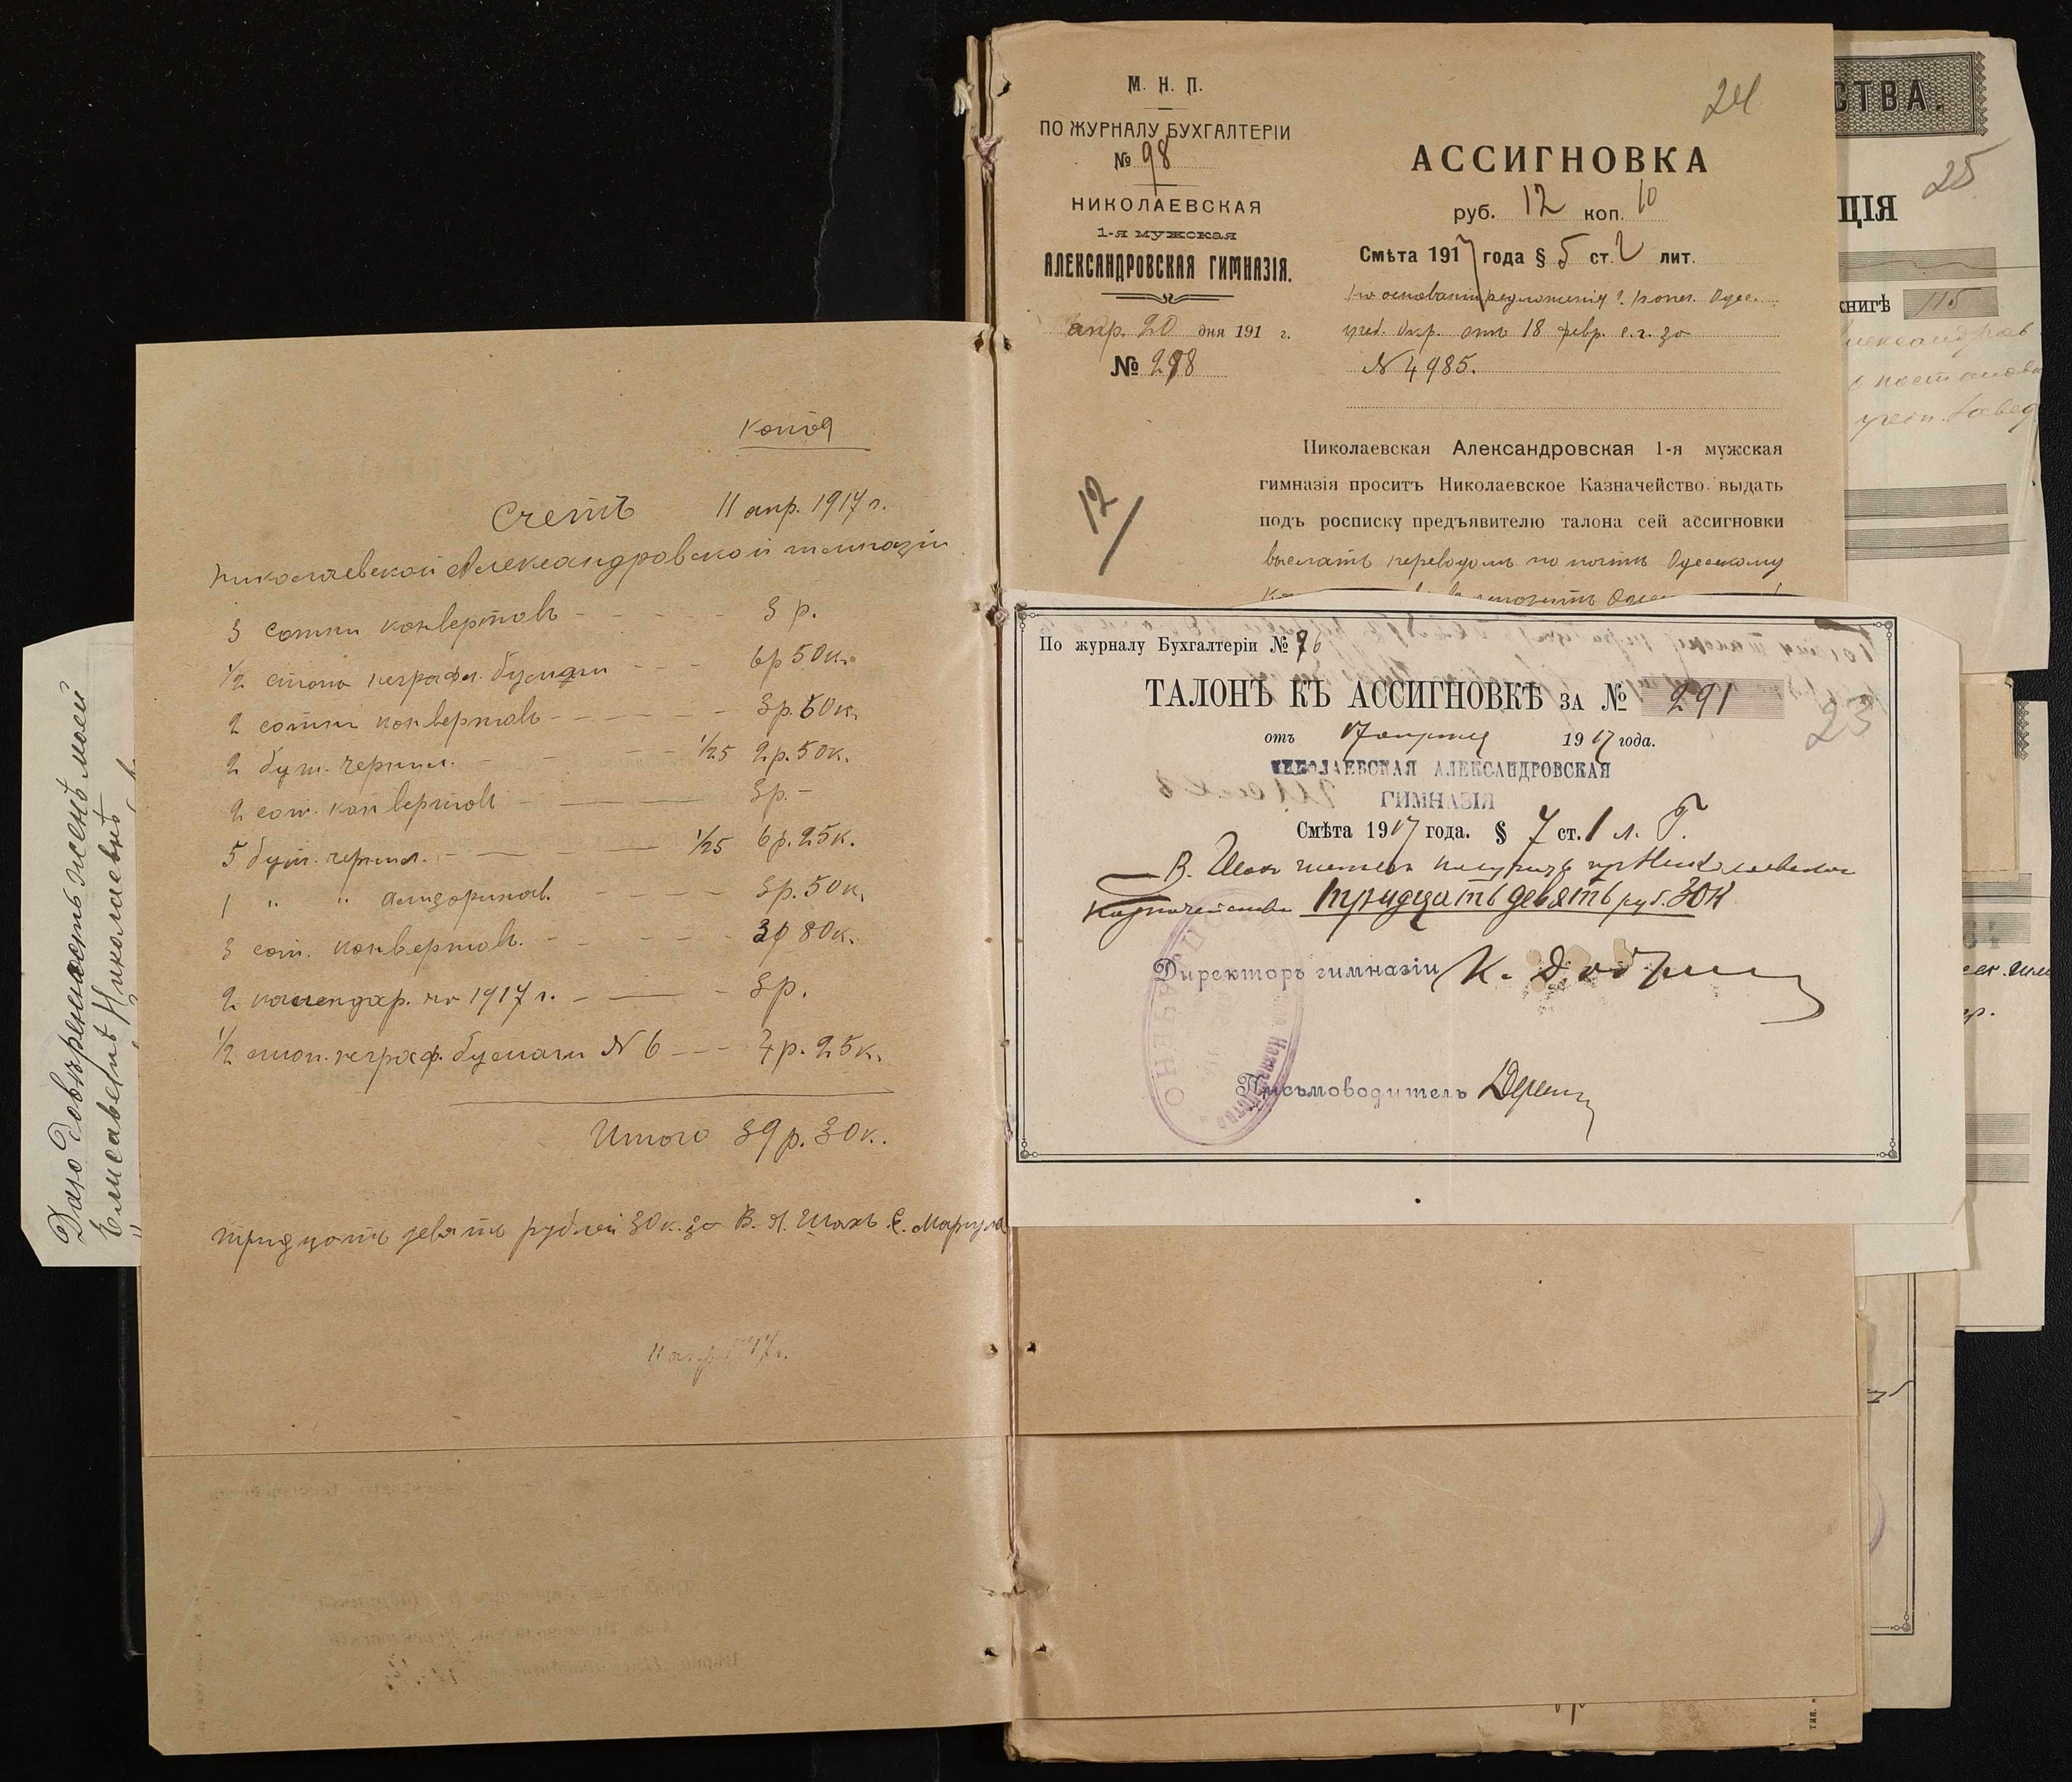 Даю довѣренность женѣ моей
Елисаветѣ Николаевнѣ
копія
Счетъ 11 апр. 1917 г.
Николаевской Александровской гимназіи
3 сотни конвертовъ - - - - - 3 р.
1/2 стопа неграфл. бумаги - - - 6р 50к.
2 сотни конвертовъ - - - - - 3р. 60к.
2 бут. чернил. - - - - 1/25 2р. 50к.
2 сот. конвертовъ - - - 3р. -
5 бут. чернил. - - - - 1/25 6р. 25к.
1 " " ализоринов. - - - - 3р. 50к.
3 сот. конвертовъ. - - - - - 3р 80к.
2 календар. на 1917 г. - - - 3р.
1/2 стоп. неграф. бумаги N 6 - - - 4р. 25к.
Итого 39 р. 30к.
тридцать девять рублей 30к. за В. Я. Шахъ
11 апр. 1917г.
М. Н. П.
ПО ЖУРНАЛУ БУХГАЛТЕРІИ
№ 98
НИКОЛАЕВСКАЯ
1-я мужская
АЛЕКСАНДРОВСКАЯ ГИМНАЗІЯ.
апр. 20 дня 191 г.
№ 298
12/
24
АССИГНОВКА
руб. 12 коп. 10
Смѣта 1917 года § 5 ст. 2 лит.
На основаніи предложенія г. попеч. Одес.
учеб. Окр. отъ 18 февр. с.г. за
N 4985.
Николаевская Александровская 1-я мужская
гимназія проситъ Николаевское Казначейство выдать
подъ росписку предъявителю талона сей ассигновки
выслать переводомъ по почтѣ Одесскому
По журналу Бухгалтеріи № 96
ТАЛОНЪ КЪ АССИГНОВКѢ ЗА № 291
23
отъ 17 апрѣля 1917 года.
НИКОЛАЕВСКАЯ АЛЕКСАНДРОВСКАЯ
ГИМНАЗІЯ
Смѣта 1917 года. § 7 ст. 1 л. Г.
В. Шахъ имѣетъ получить изъ Николаевскаго
Казначейства тридцать девять руб. 30К
Директоръ гимназіи К.
Письмоводитель
СТВА.
25
ЦІЯ
книгѣ 115